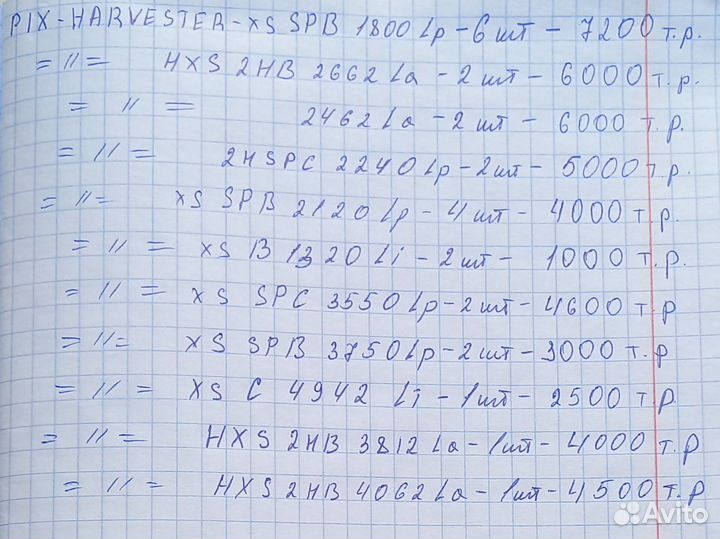 PIX-HARVESTER-XS SPB 1800 Lp-6 шт - 7200 т.р.
= // = HXS 2HB 2662 La - 2 шт - 6000 т.р.
= // = 2462 La - 2 шт - 6000 т.р.
= // = 2HSPC 2240 Lp - 2 шт - 5000 т.р.
= // = XS SPB 2120 Lp - 4 шт - 4000 т.р.
= // = XS B 1320 Li - 2 шт - 1000 т.р.
= // = XS SPC 3550 Lp - 2 шт - 4600 т.р
= // = XS SPB 3750 Lp - 2 шт - 3000 т.р
= // = XS C 4942 Li - 1 шт - 2500 т.р
= // = HXS 2HB 3812 La - 1 шт - 4000 т.р
= // = HXS 2HB 4062 La - 1 шт - 4500 т.р
Avito